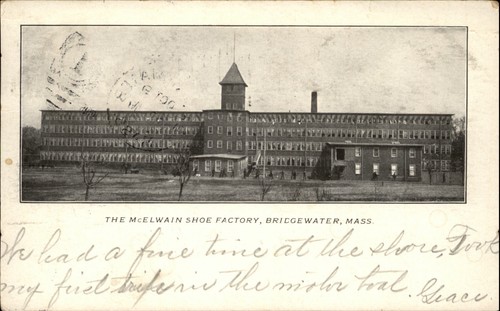 THE McELWAIN SHOE FACTORY, BRIDGEWATER, MASS.
We had a fine time at the shore, Took
my first trip in the motor boat Grace.